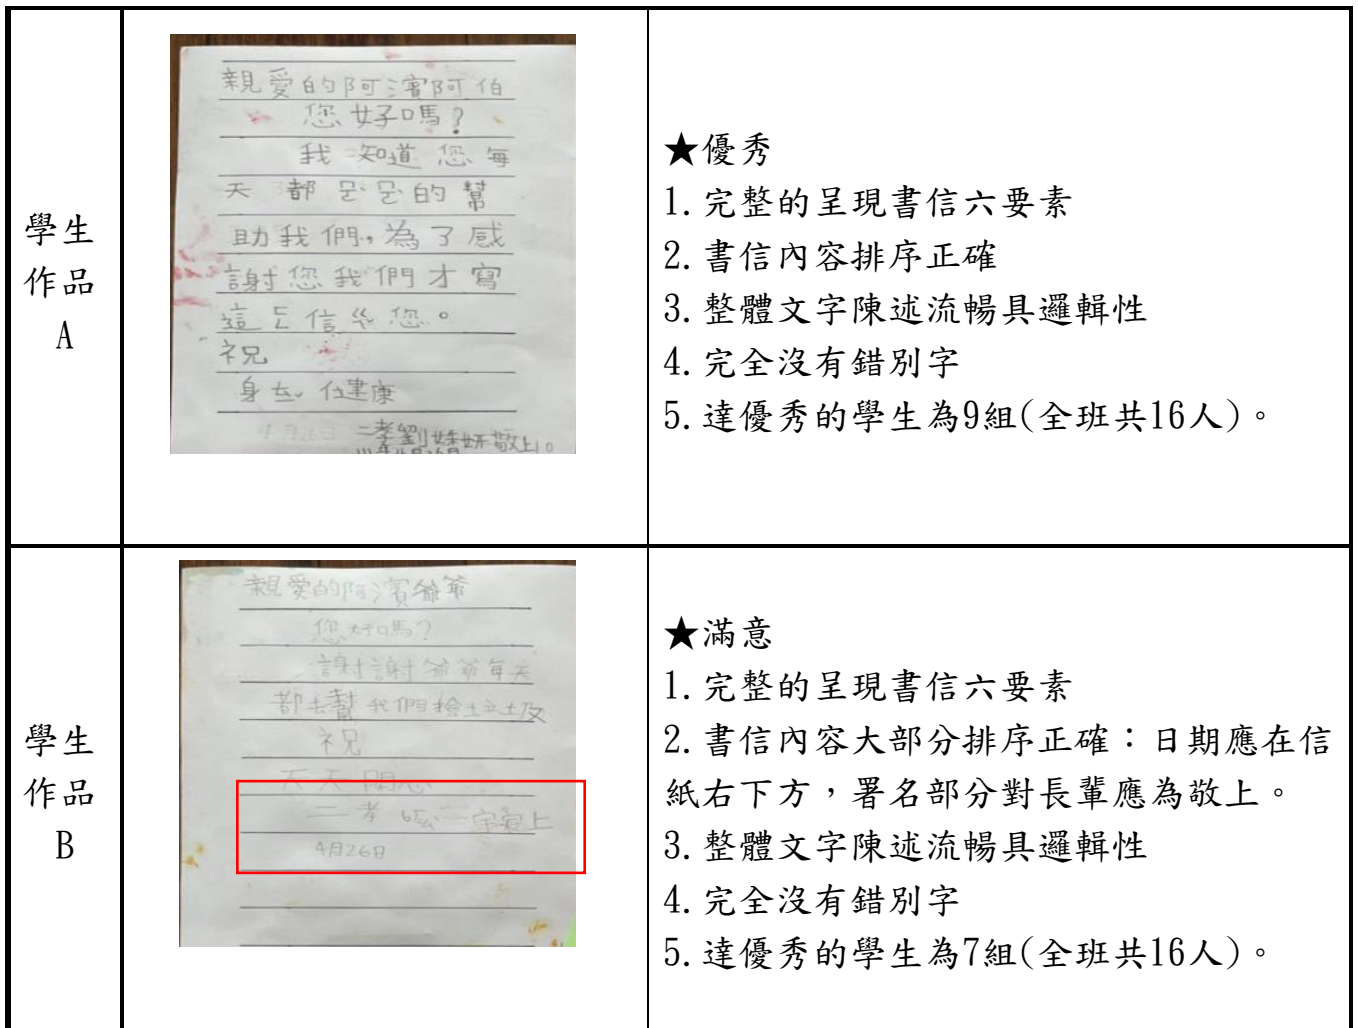 學生
作品
A
親愛的阿濱阿伯
您好嗎？
我知道您每
天都ㄕㄕ的幫
助我們，為了感
謝您我們才寫
這ㄈ信ㄍ您。
祝
身ㄊ健康
4月26日 二孝劉 敬上。
★優秀
1.完整的呈現書信六要素
2.書信內容排序正確
3.整體文字陳述流暢具邏輯性
4.完全沒有錯別字
5.達優秀的學生為9組(全班共16人)。
學生
作品
B
親愛的阿濱爺爺
您好嗎？
謝謝爺爺每天
都去幫我們撿垃圾
祝
天天開心
二孝 上
4月26日
★滿意
1.完整的呈現書信六要素
2.書信內容大部分排序正確：日期應在信
紙右下方，署名部分對長輩應為敬上。
3.整體文字陳述流暢具邏輯性
4.完全沒有錯別字
5.達優秀的學生為7組(全班共16人)。